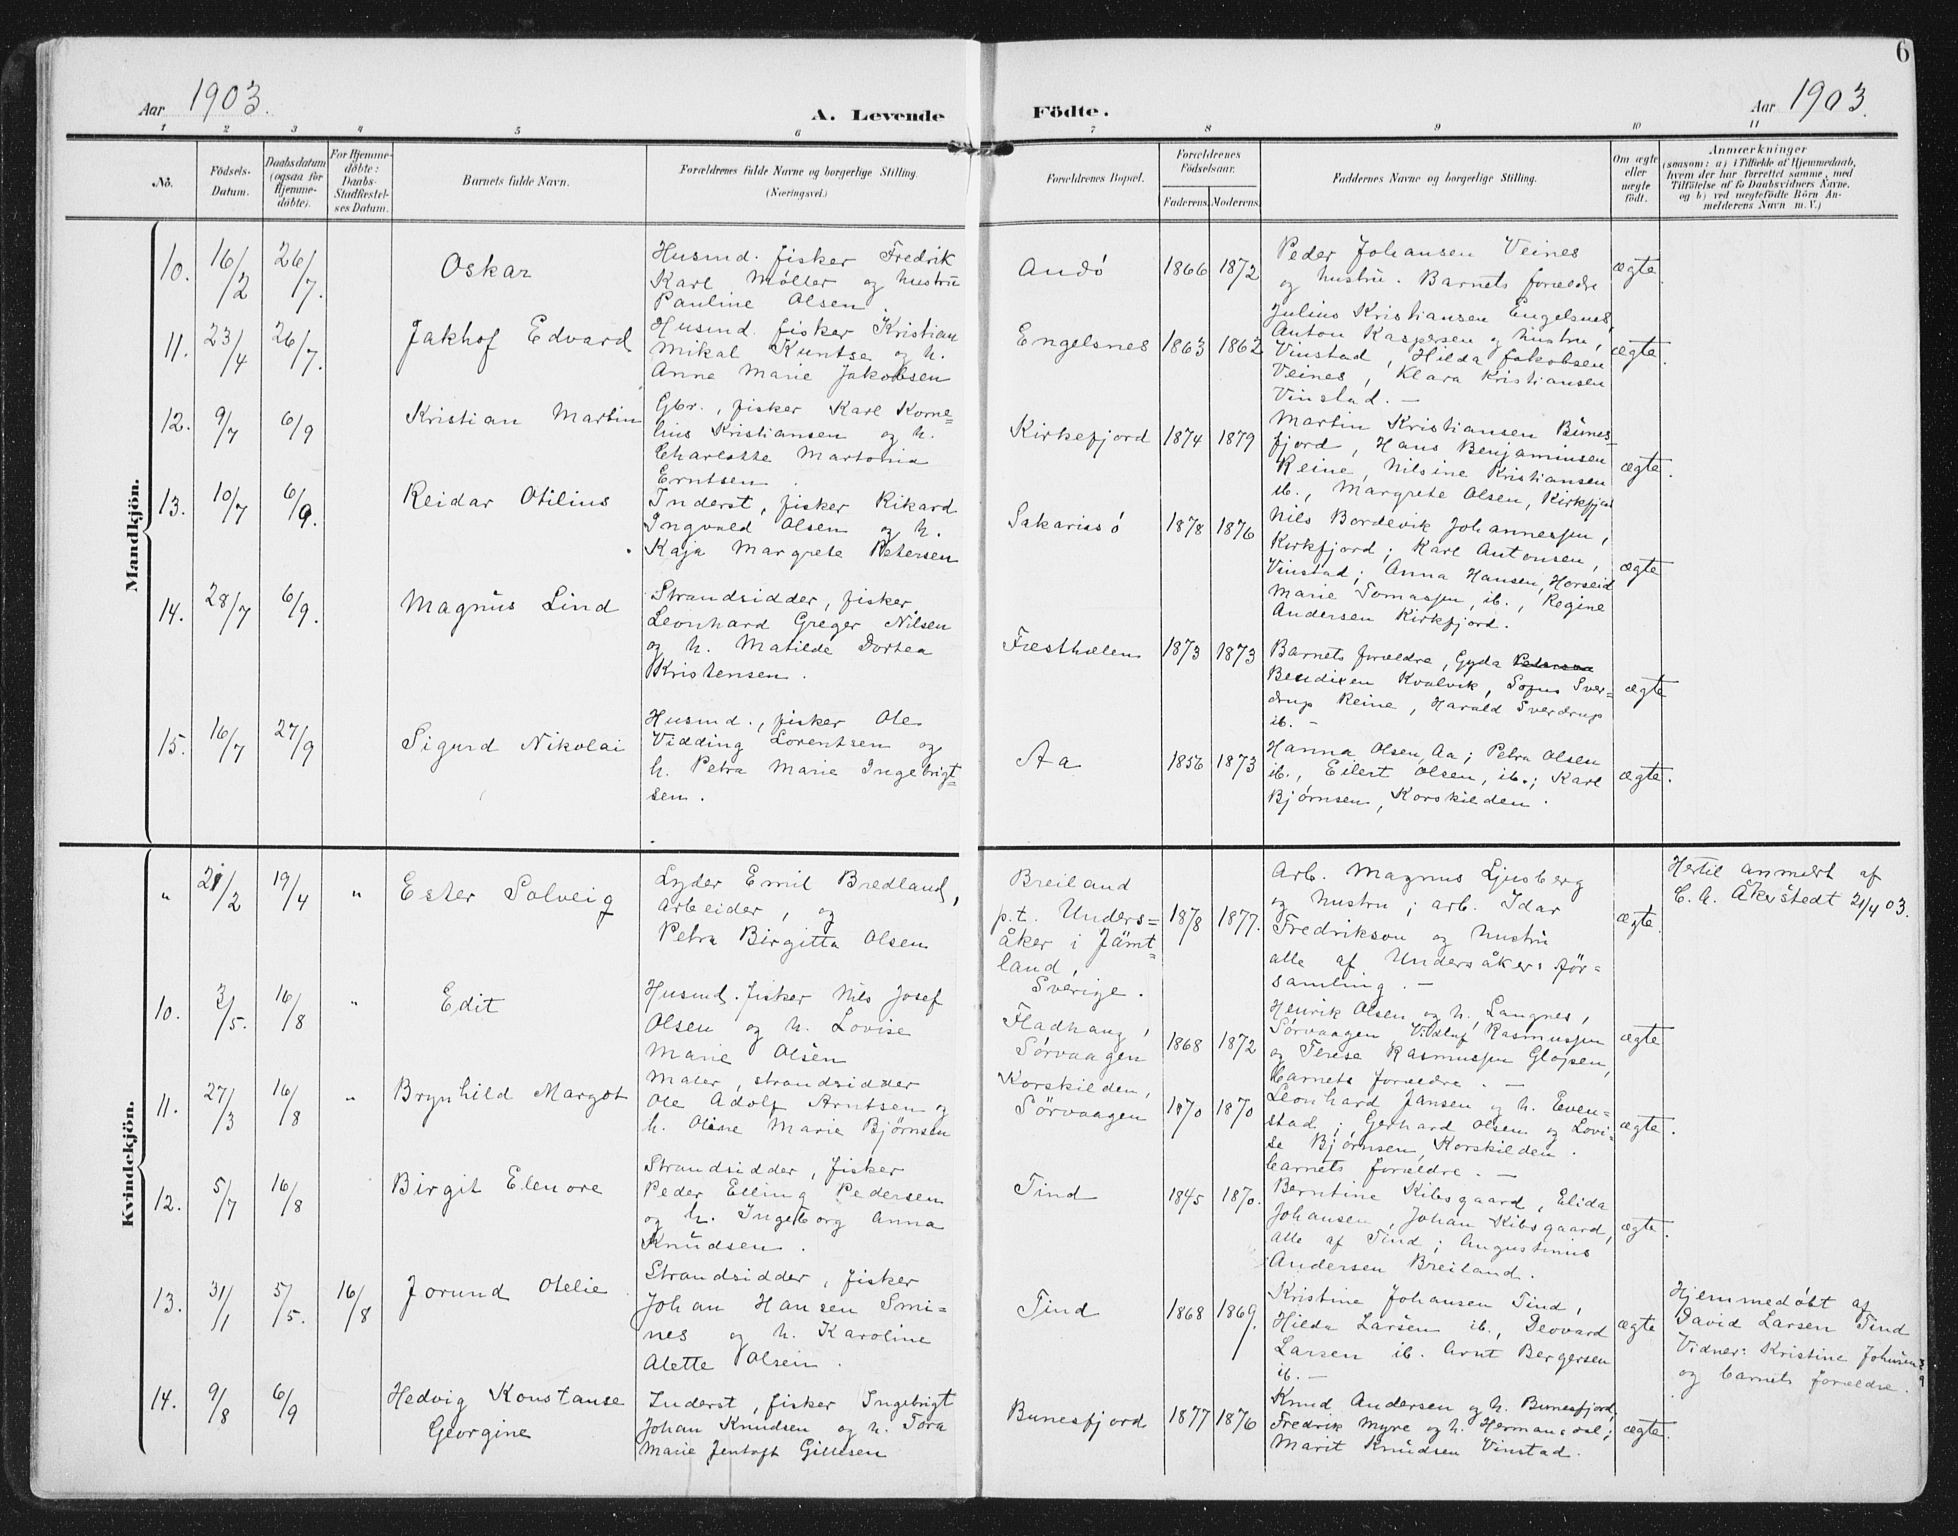 6
Aar 1903.
A. Levende Födte.
Aar 1903.
1 2 3 4 5 6 7 8 9 10 11
No.
Födsels-Datum.
Daabsdatum (ogsaa for Hjemme-döbte).
For Hjemme-döbte: Daabs-Stadfæstel-ses Datum.
Barnets fulde Navn.
Forældrenes fulde Navne og borgerlige Stilling. (Næringsvei.)
Forældrenes Bopæl.
Forældrenes Födselsaar.
Faderens. Moderens.
Faddernes Navne og borgerlige Stilling.
Om ægte eller uægte födt.
Anmærkninger
(saasom: a) i Tilfælde af Hjemmedaab,
hvem der har forrettet samme, med
Tilföielse af to Daabsvidners Navne.
og b) ved uægtefödte Börn An-
melderens Navn m. V.)
Mandkjön.
10. 16/2 26/7. Oskar
Husmd. fisker Fredrik
Karl Møller og hustru
Pauline Olsen
Andö 1866 1872
Peder Johansen Veines
og hustru. Barnets forældre
ægte.
11. 23/4 26/7. Jakhof Edvard
Husmd. fisker Kristian
Mikal Kuntse og h.
Anne Marie Jakobsen
Engelsnes 1863 1862
Julius Kristiansen Engelsnes,
Anton Kaspersen og hustru,
Vinstad, Hilda Jakobsen
Veines, Klara Kristiansen
Vinstad. —
ægte.
12. 9/7 6/9 Kristian Martin
Gbr., fisker Karl Korne-
lius Kristiansen og h.
Charlotte Martonia
Erntsen.
Kirkefjord 1874 1879
Martin Kristiansen Bunes-
fjord, Hans Benjaminsen
Reine, Nilsine Kristiansen
ib., Margrete Olsen, Kirkfjord
ægte.
13. 10/7 6/9. Reidar Otilius
Inderst, fisker Rikard
Ingvald Olsen og h.
Kaja Margrete Petersen
Sakarissö 1878 1876
Nils Bordevik Johannessen,
Kirkfjord; Karl Antonsen,
Vinstad; Anna Hansen, Horseid
Marie Tomassen, ib., Regine
Andersen Kirkfjord.
ægte
14. 28/7 6/9. Magnus Lind
Strandsidder, fisker
Leonhard Greger Nilsen
og h. Matilde Dortea
Kristensen.
Fæsthælen 1873 1873
Barnets forældre, Gyda Petersen
Bendixen Kvalvik, Sofus Sver-
drup Reine, Harald Sverdrup
ib. —
ægte
15. 16/7 27/9 Sigurd Nikolai
Husmd., fisker Ole
Vidding Lorentsen og
h. Petra Marie Ingebrigt-
sen.
Aa 1856 1873
Hanna Olsen, Aa; Petra Olsen
ib., Eilert Olsen, ib.; Karl
Bjørnsen, Korskilden.
ægte.
Kvindekjön.
" 21/2 19/4 " Ester Solveig
Lyder Emil Bredland,
Arbeider, og
Petra Birgitta Olsen
Breiland
p.t. Unders-
åker i Jämt-
land,
Sverige.
1878 1877.
Arb. Magnus Ljusberg
og hustru; arb. Idar
Fredrikson og hustru
alle af Undersåkers för-
samling. —
ægte.
Hertil anmeldt af
C. A. Åkerstedt 21/4 03.
10. 3/5. 16/8 " Edit
Husmd. fisker Nils Josef
Olsen og h. Lovise
Marie Olsen
Fladhaug,
Sørvaagen
1868 1872
Henrik Olsen og h. Langnes,
Sørvaagen Vidluf Rasmussen
og Terese Rasmussen Glopen,
barnets forældre. —
ægte
11. 27/3 16/8 " Brynhild Margot
Maler, strandsidder
Ole Adolf Arntsen og
h. Oline Marie Bjørnsen
Korskilden,
Sörvaagen
1870 1870
Leonhard Jansen og h. Even-
stad; Gerhard Olsen og Lovi-
se Bjørnsen, Korskilden.
barnets forældre. —
ægte.
12. 5/7 16/8 Birgit Elenore
Strandsidder, fisker
Peder Elling Pedersen
og h. Ingeborg Anna
Knudsen.
Tind 1845 1870.
Berntine Kibsgaard, Elida
Johansen, Johan Kibsgaard,
alle af Tind; Augustinus
Andersen Breiland.
ægte.
13. 31/1 5/5. 16/8 Jorund Otelie
Strandsidder, fisker
Johan Hansen Smi-
nes og h. Karoline
Alette Olsen.
Tind 1868 1869.
Kristine Johansen Tind,
Hilda Larsen ib., Deovard
Larsen ib. Arnt Bergersen
ib. —
ægte
Hjemmedöbt af
David Larsen Tind
Vidner: Kristine Johnsen
og barnets forældre.
14. 9/8 6/9 Hedvig Konstanse
Georgine
Inderst, fisker Ingebrigt
Johan Knudsen og h. Tora
Marie Jentoft Gillesen
Bunesfjord 1877 1876
Knud Andersen og h. Bunesfjord,
Fredrik Myre og h. Hermansdal;
Marit Knudsen Vinstad.
ægte.